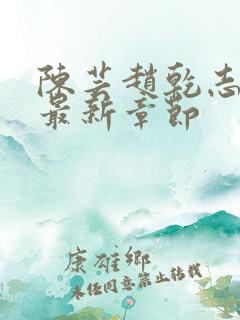 陳芸趙乾志
最新章節
康雄鄉
未经同意禁止转载